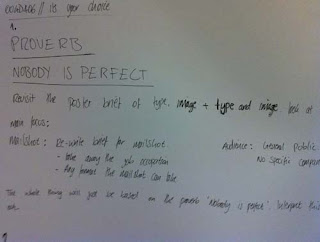 // its your choice
1.
PROVERB
NOBODY IS PERFECT
Revisit the poster brief of type, image + type and image. look at
main focus:
Mailshot: Re-write brief for mailshot. Audience: General Public.
- take away the job No specific
- Any format the mailshot can take
The whole thing will just be based on the proverb 'Nobody is perfect'. Interpret this